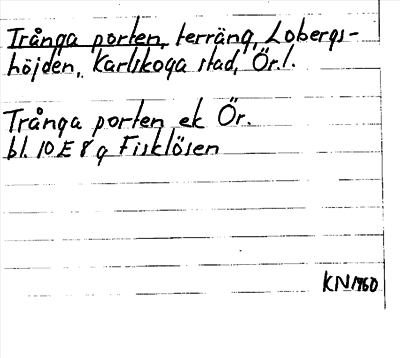 Trånga porten, terräng, Lobergs-
höjden, Karlskoga stad, Ör.l.
Trånga porten ek Ör.
bl. 10E 8 g Fisklösen
KN1960